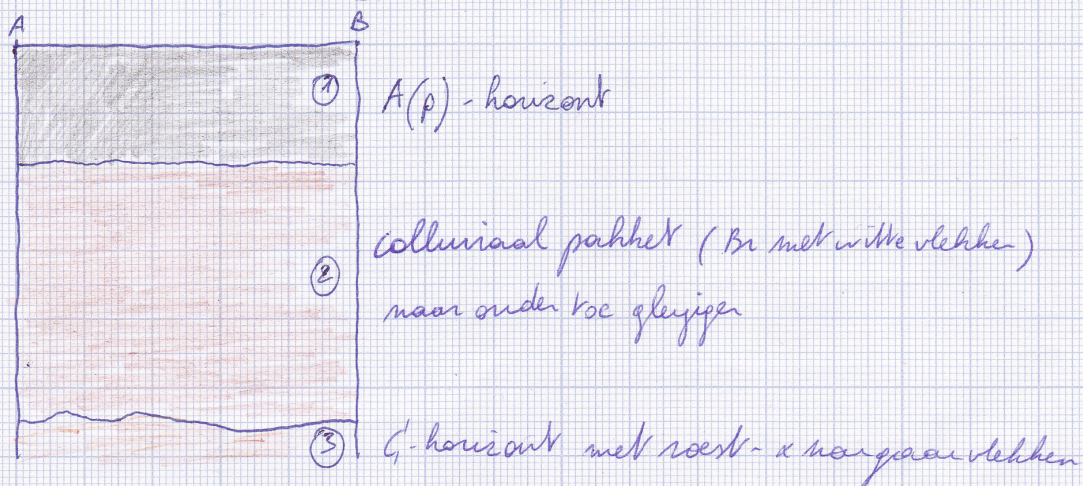 A B
① A(p)-horizont
colluviaal pakket (Br met witte vlekken)
② naar onder toe gleyiger
③ C-horizont met roest- & mangaanvlekken